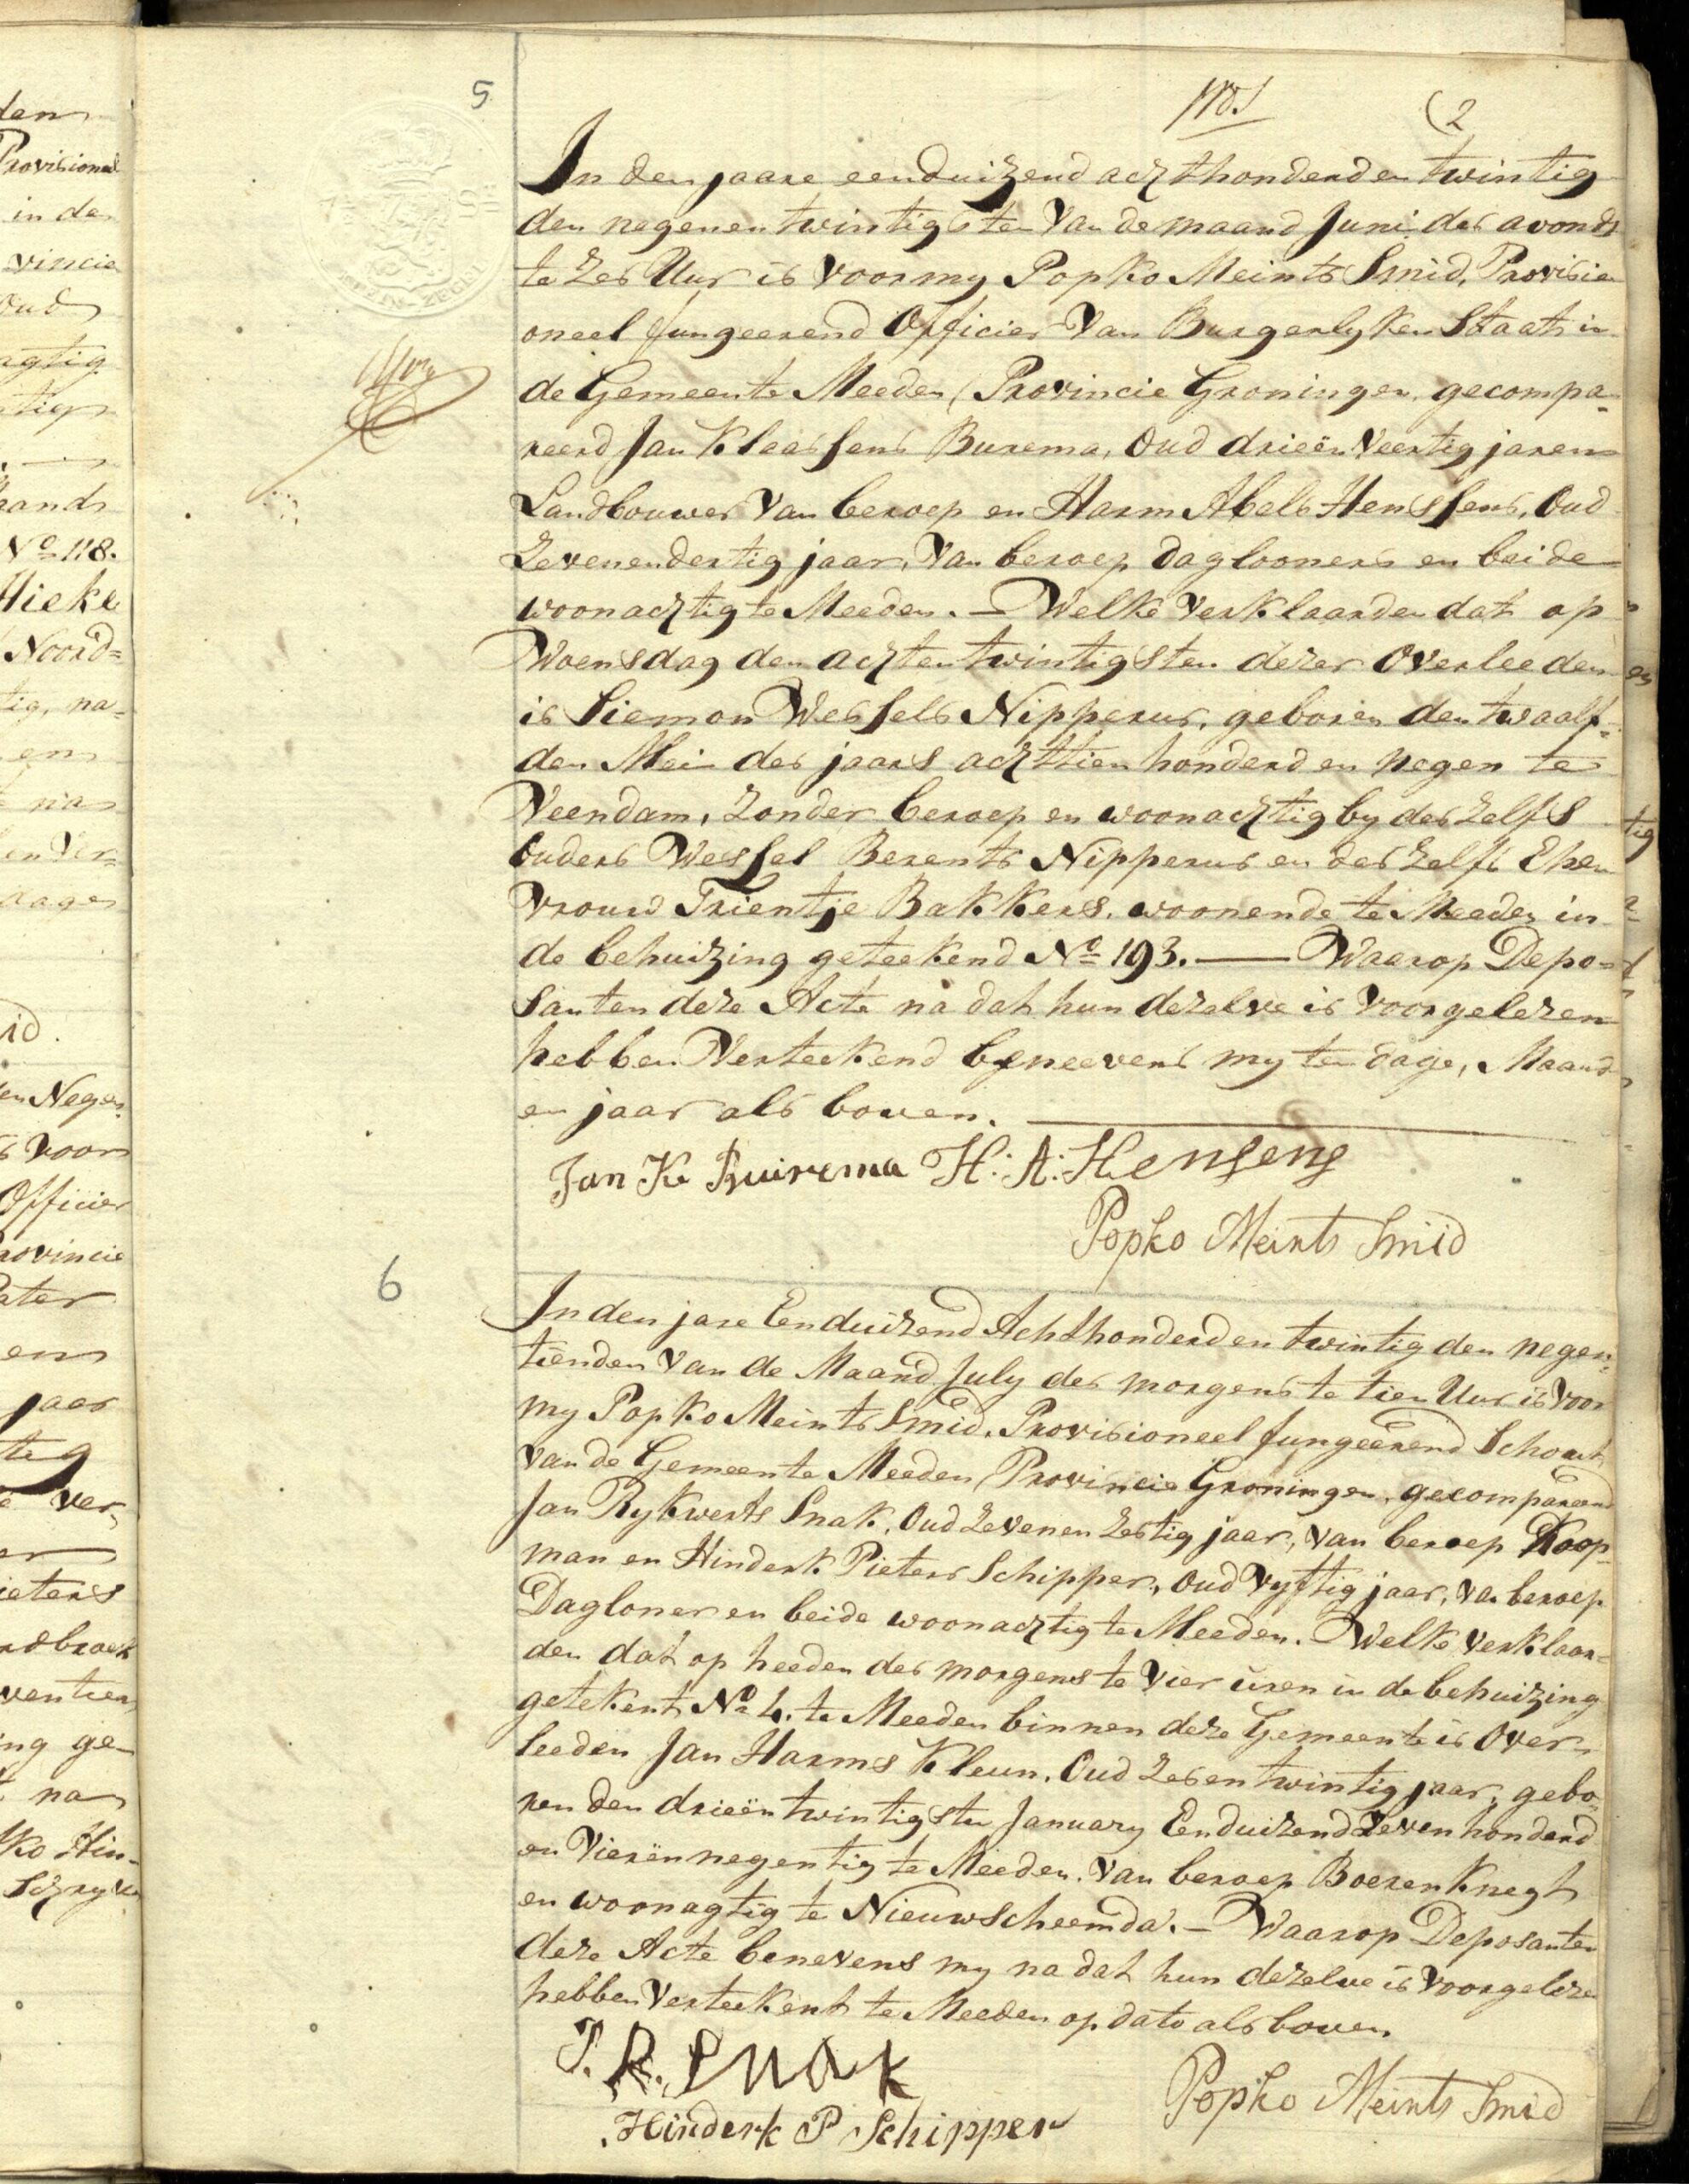 5
(2
In den jaare eenduizend achthonderd en twintig
den negenentwintigsten van de maand Juni des avonds
te zes Uur is voor my Popko Meints Smid, Provisi-
oneel fungeerend Officier Van Burgerlyken Staat in
de Gemeente Meeden, Provincie Groningen, gecompa-
reerd Jan Klaassens Burema, Oud drieën Veertig jaren
Landbouwer Van beroep en Harm Abels Henssens, Oud
Zevenendertig jaar, Van beroep daglooners en beide
woonachtig te Meeden. — Welke Verklaarden dat op
Woensdag den achtentwintigsten dezer Overleeden
is Siemon Wessels Nipperus, geboren den twaalf-
den Mei des jaars achttien honderd en Negen te
Veendam, Zonder beroep en woonachtig by deszelfs
Ouders Wessel Berents Nipperus en deszelfs Ehe
Vrouw Trientje Bakkers, woonende te Meeden in
de behuizing geteekend No 193. — Waarop Depo-
santen deze Acte na dat hun dezelve is Voorgelezen
hebben Verteekend beneevens my ten dage, Maand
en jaar als boven.
Jan K Buirema H: A: Hensens
Popko Meints Smid
6
In den jare Eenduizend Achthonderd en twintig den negen-
tienden Van de Maand July des morgens te tien Uur is Voor
my Popko Meints Smid, Provisioneel fungeerend Schout
Van de Gemeente Meeden, Provincie Groningen, gecompareerd
Jan Rykwerts Snak, Oud Zevenen Zestig jaar, Van beroep Koop-
man en Hinderk Pieters Schipper, Oud Vyftig jaar, Van beroep
Dagloner en beide woonachtig te Meeden. Welke Verklaar-
den dat op heeden des morgens te Vier uren in de behuizing
getekent No 4. te Meeden binnen deze Gemeente is Over-
leeden Jan Harms Kleun, Oud Zesentwintig jaar, gebo-
ren den drieëntwintigsten January Eenduizend Zevenhonderd
en Vierënnegentig te Meeden. Van beroep Boerenknegt
en woonagtig te Nieuwscheemda. — Waarop Deposanten
deze Acte benevens my na dat hun dezelve is Voorgeleze
hebben Verteekent te Meeden op dato als boven.
J. R. Snak
Hinderk P Schipper
Popko Meints Smid